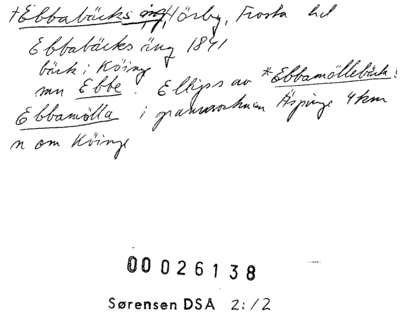 †Ebbabäcks äng, Hörby, Frosta hd
Ebbabäcks äng 1841
bäck i Köinge
mn Ebbe. Ellips av *Ebbamöllebäck:
Ebbamölla i grannsocknen Äspinge 4 km
n om Köinge
00026138
Sørensen DSA 2:12